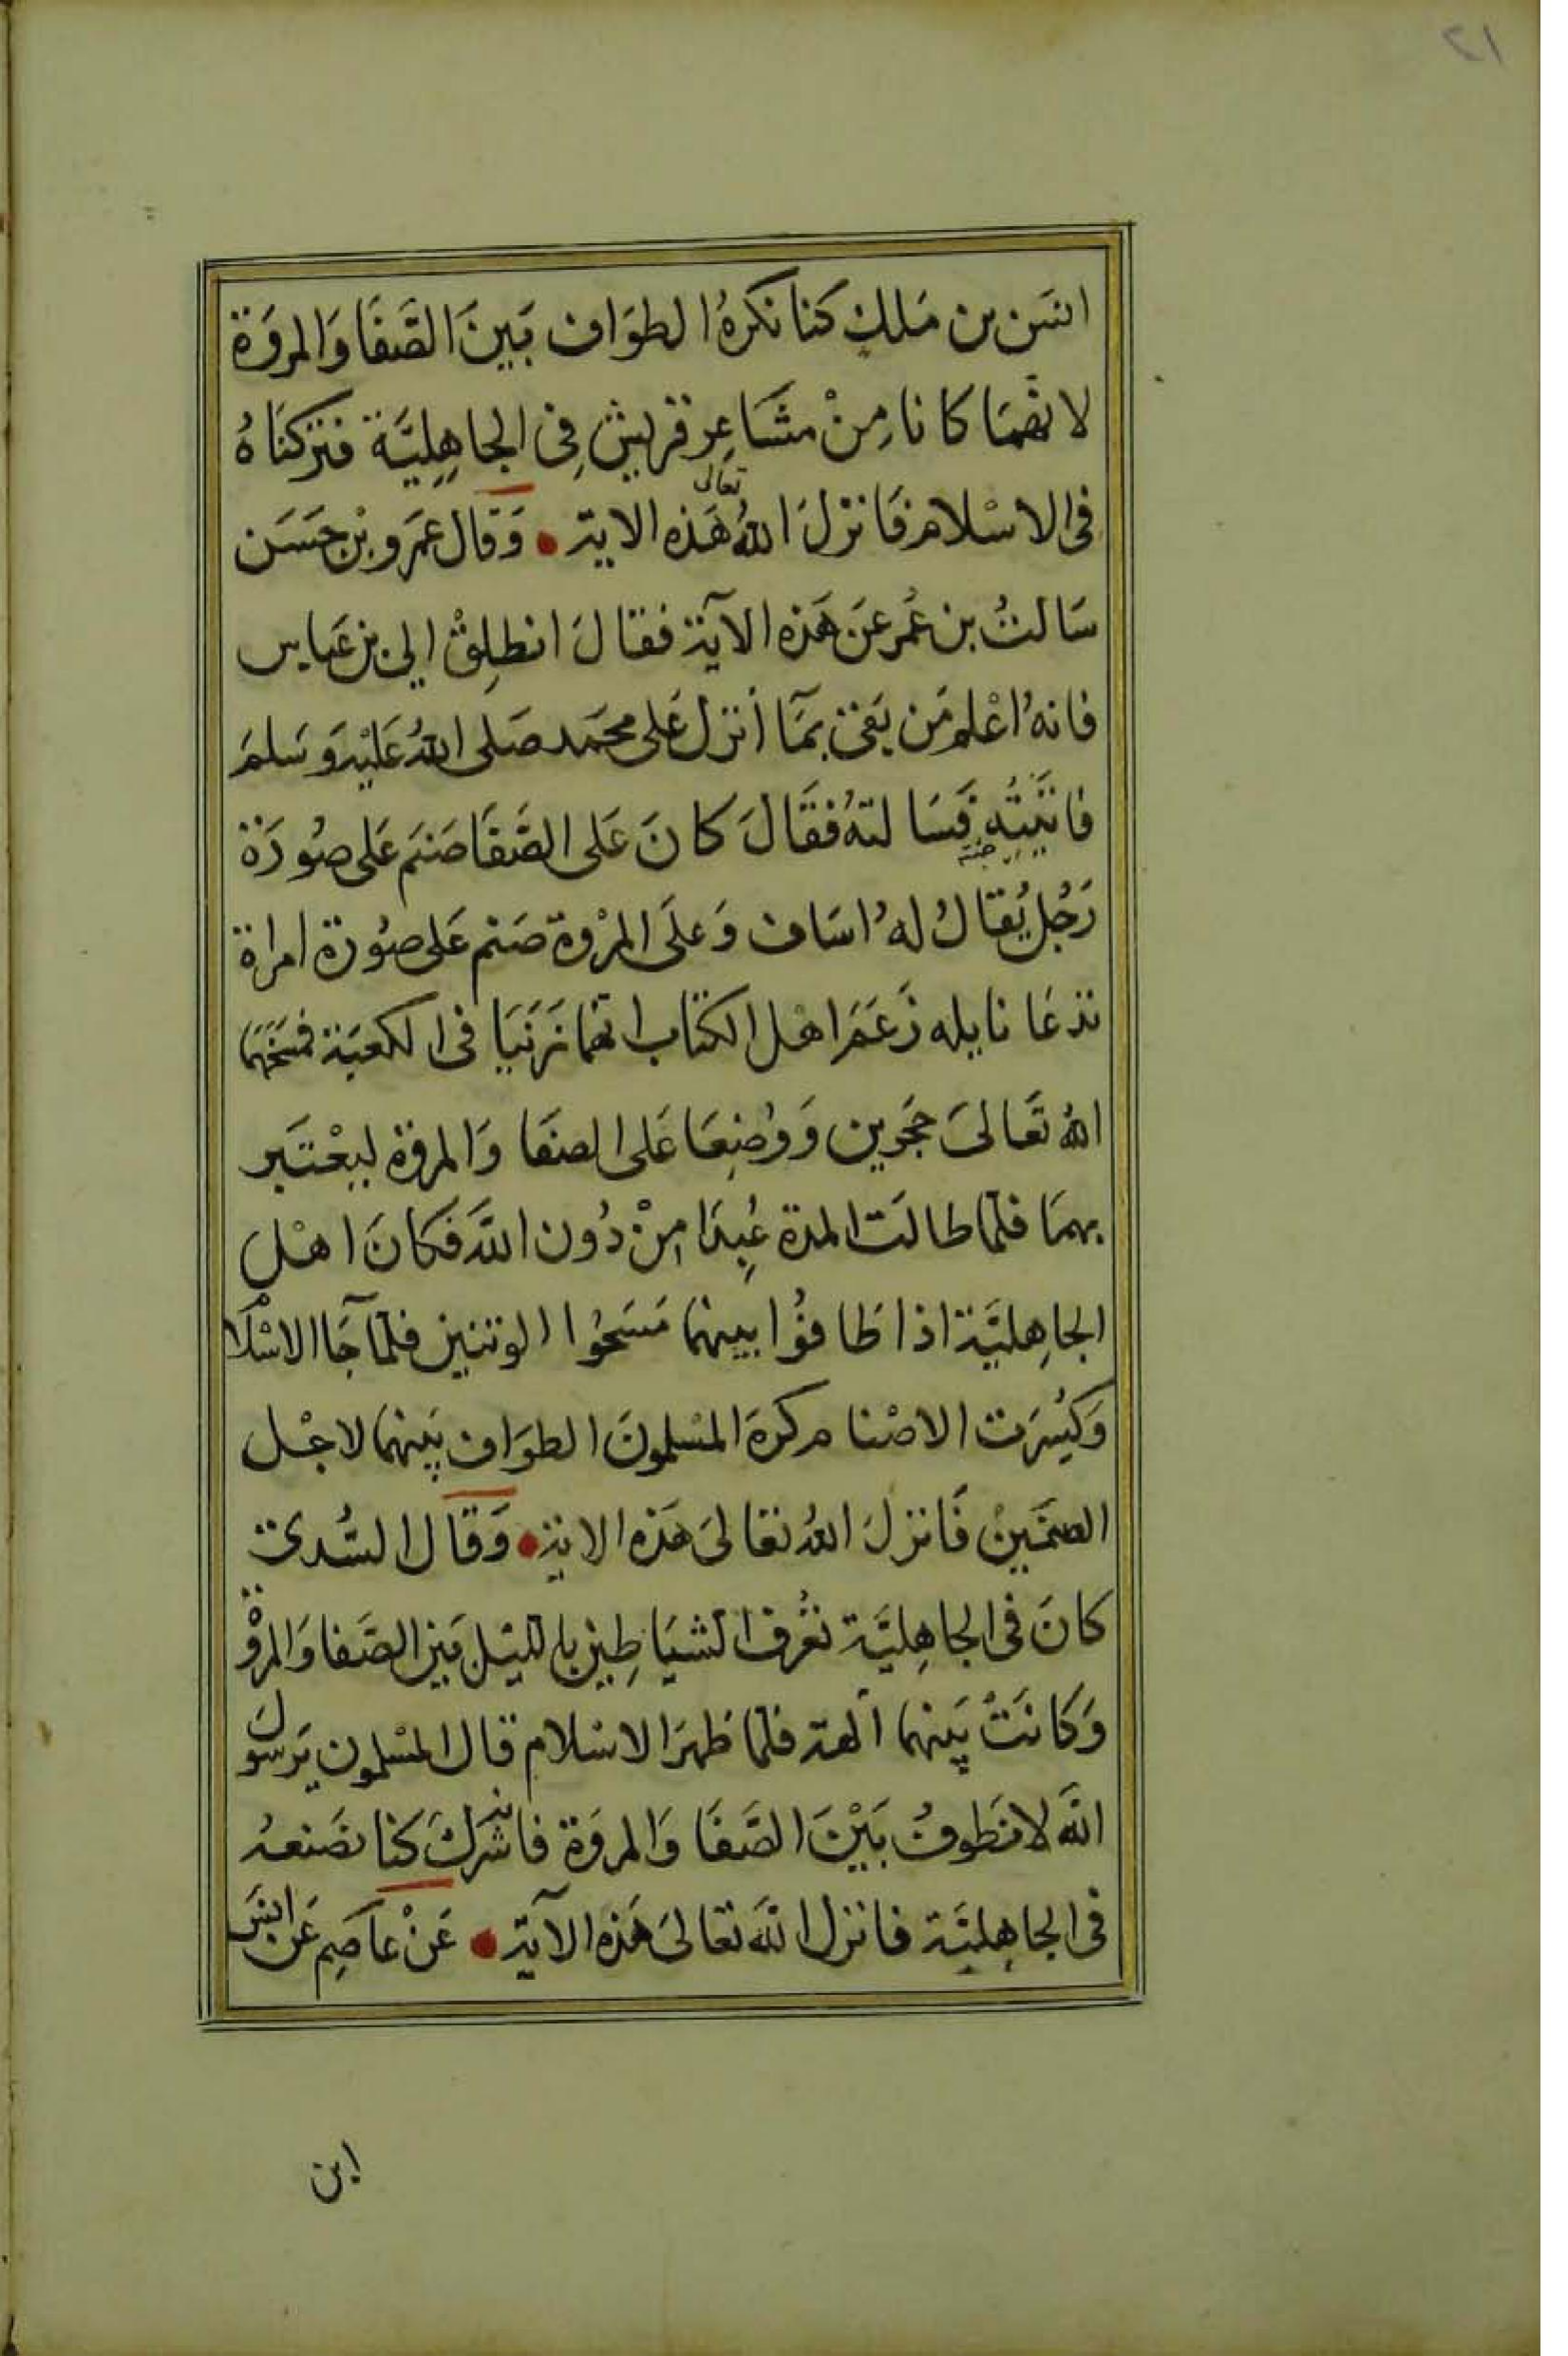 ٢١
انس بن مَلك كنا نكرهُ الطوَاف بَينَ الصَّفَا وَالمروَة
لانهمَا كانا مِنْ مشَاعِر قريش فِى الجاهِليَّة فتركنَاهُ
فى الاسْلام فَانزلَ اللهُ تعالى هَذه الاية • وَقال عَمرو بْن حسَن
سَالتُ بن عُمر عَن هَذه الآية فقالَ انطلِقْ الى بن عَباس
فانهُ اعْلم مَن بَقى بمَآ أنزل عَلى محمَد صَلى اللهُ عَليْه وَسَلمَ
فاتيَتُه فَسَالتهُ فقَالَ كانَ عَلى الصَّفَا صَنم عَلى صُورَة
رَجُل يُقالُ لهُ اسَاف وَعَلَى المرْوة صَنم عَلى صُورة امراة
تدعَا نايله زَعَمَ اهل الكتاب انهَا زَنيَا فى الكعبَة فمسَخَهمَا
اللهُ تعَالىَ حجَرين وَوُضِعَا عَلى الصفَا وَالمروَة ليعْتَبر
بهمَا فلمَا طالَت المدة عُبِدَا مِنْ دُون اللهَ فكانَ اهْل
الجاهِليَّة اذا طَافوُا بينهمَا مَسَحُوا الوثنين فلمآ جَا الاسْلَام
وَكُسِرَت الاصْنام كرهَ المسْلمونَ الطوَاف بَينهمَا لاجْل
الصنمَينْ فَانزلَ اللهُ تعَالىَ هَذه الاية • وَقَال السُّدى
كانَ فى الجاهِليَّة تعْرف الشيَاطِين بالليْل بَين الصَّفا وَالمروْة
وَكانَتْ بَينهمَا آلهة فلمَا ظهرَ الاسْلام قال المسْلمون يَرسولَ
اللهَ لا نَطوفُ بَيْنَ الصَّفَا وَالمروَة فانه شركَ كنا نصَنعه
فى الجاهِليَّة فانزل اللهَ تعَالىَ هَذه الآية • عَنْ عاصَم عَن انسَ
ابن